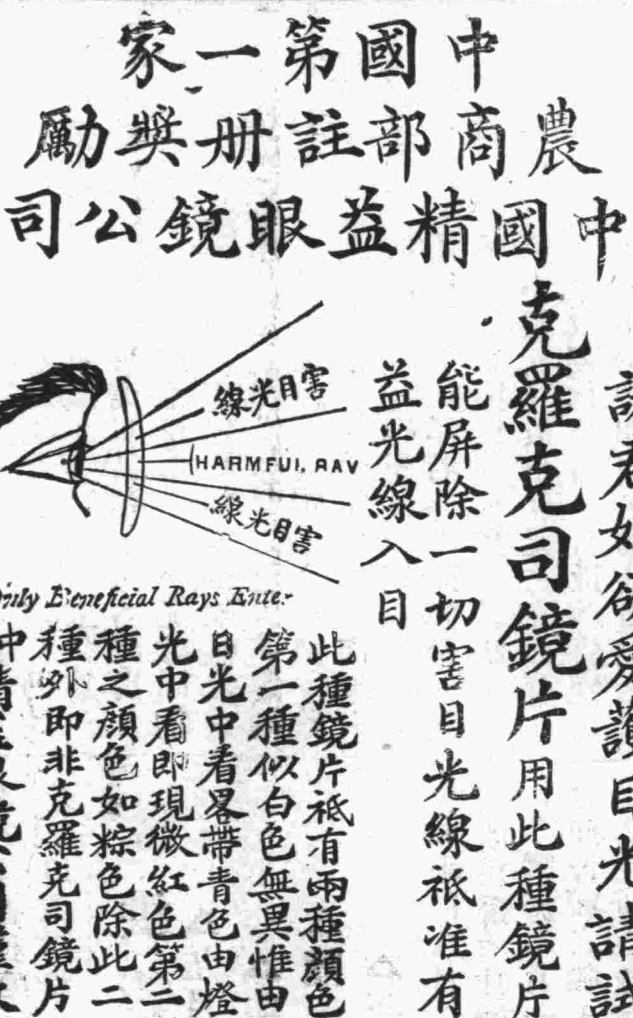 中國第一家
農商部註册獎勵
中國精益眼鏡公司
君如欲愛護目光請試
克羅克司鏡片用此種鏡片
能屏除一切害目光線祇准有
益光線入目
害目光線
HARMFUL RAY
害目光線
Only Beneficial Rays Enter
此種鏡片祇有兩種顏色
第一種似白色無異惟由
日光中看畧帶青色由燈
光中看即現微紅色第二
種之顏色如粽色除此二
種外即非克羅克司鏡片